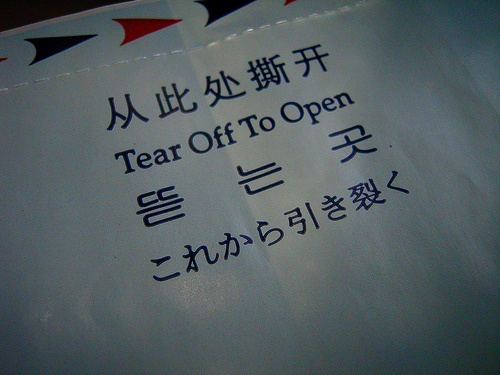 从此处撕开
Tear Off To Open
뜯는곳
これから引き裂く